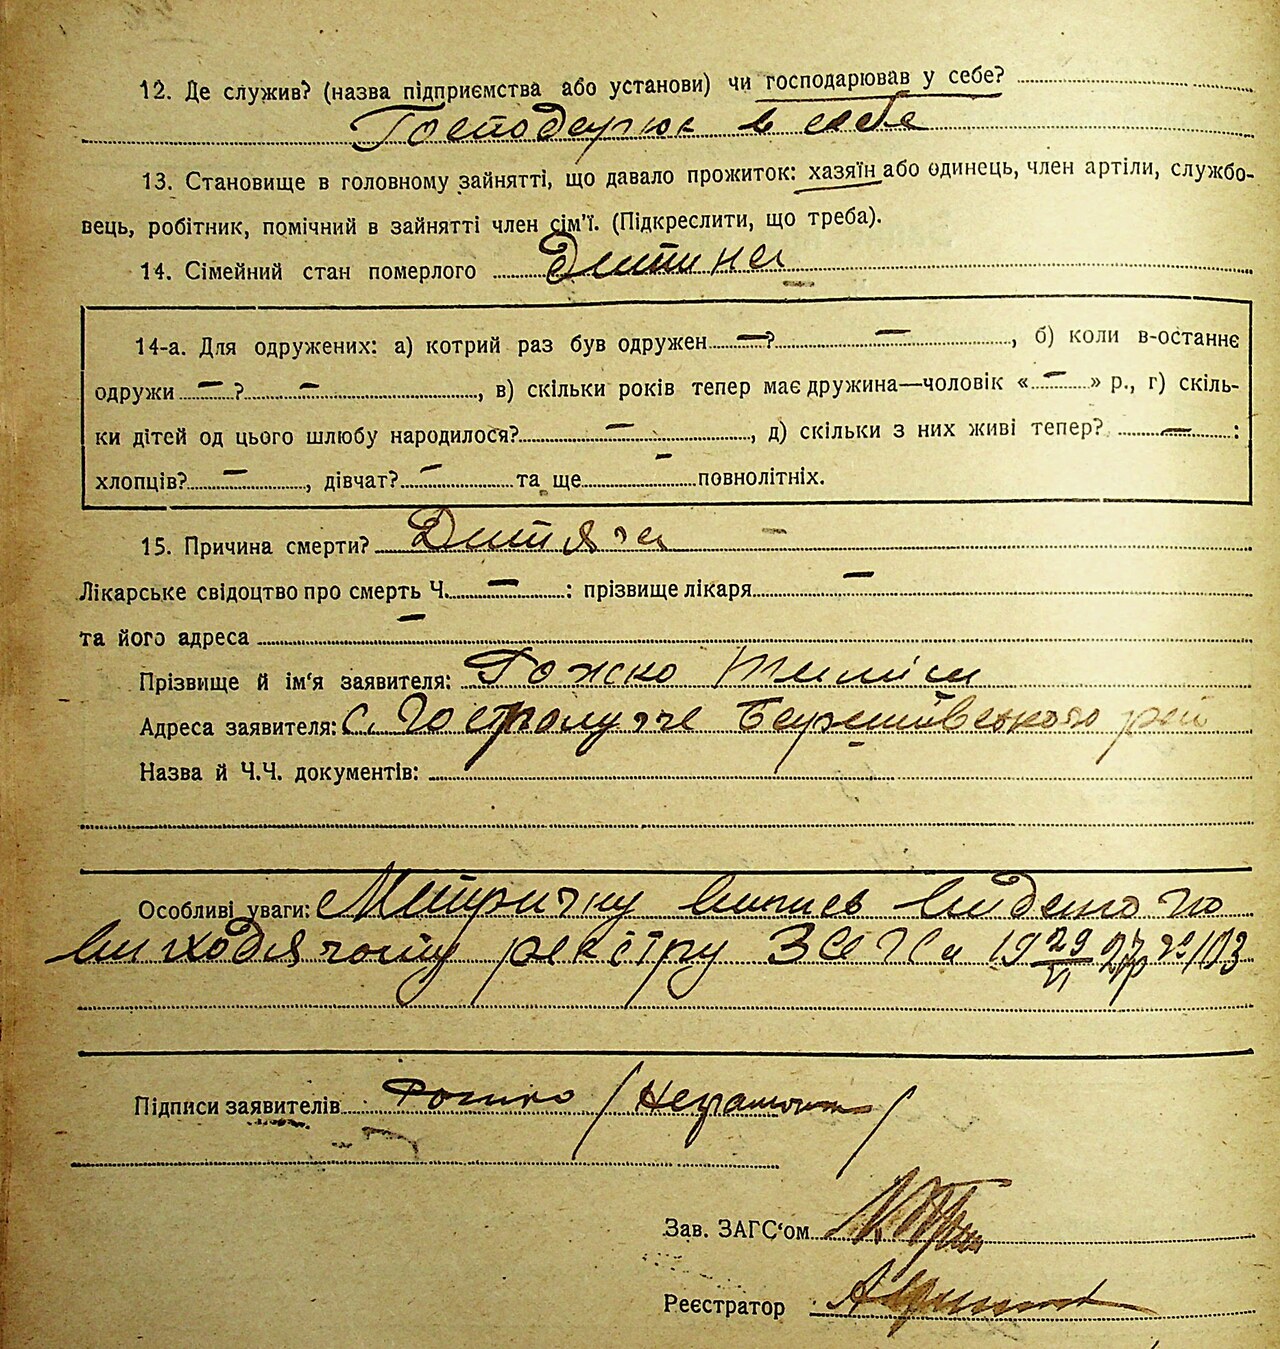 12. Де служив? (назва підприємства або установи) чи господарював у себе?
Господарює в себе
13. Становище в головному зайнятті, що давало прожиток: хазяїн або одинець, член артіли, службо-
вець, робітник, помічний в зайнятті член сім'ї. (Підкреслити, що треба).
14. Сімейний стан померлого Дитина
14-а. Для одружених: а) котрий раз був одружен — ? —, б) коли в-останнє
одружи — ? —, в) скільки років тепер має дружина—чоловік « — » р., г) скіль-
ки дітей од цього шлюбу народилося? —, д) скільки з них живі тепер? — :
хлопців? —, дівчат? — та ще — повнолітніх.
15. Причина смерти? Дитяча —
Лікарське свідоцтво про смерть Ч. — : прізвище лікаря —
та його адреса —
Прізвище й ім'я заявителя: Гожко
Адреса заявителя: с. Гостролуччя Баришівського рай
Назва й Ч.Ч. документів:
Особливі уваги: Метричну випись видано по
виходячому реєстру ЗАГСа 1929 VI 27 № 1103
Підписи заявителів Гожко / Неграмотн /
Зав. ЗАГС'ом
Реєстратор